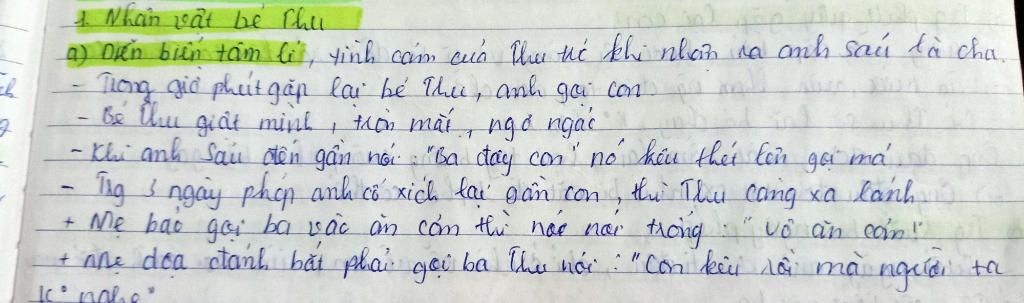 1. Nhân vật bé Thu
a) Diễn biến tâm lí, tình cảm của Thu từ khi nhận ra anh Sáu là cha.
- Trong giờ phút gặp lại bé Thu, anh gọi con
- Bé Thu giật mình, tròn mắt, ngơ ngác
- Khi anh Sáu đến gần nói: "Ba đây con" nó kêu thét lên gọi má
- Trg 3 ngày phép anh cố xích lại gần con, thì Thu càng xa lánh
+ Mẹ bảo gọi ba vào ăn cơm thì nói trổng: "vô ăn cơm!"
+ Mẹ dọa đánh bắt phải gọi ba Thu nói: "Con kêu rồi mà người ta
k° nghe"